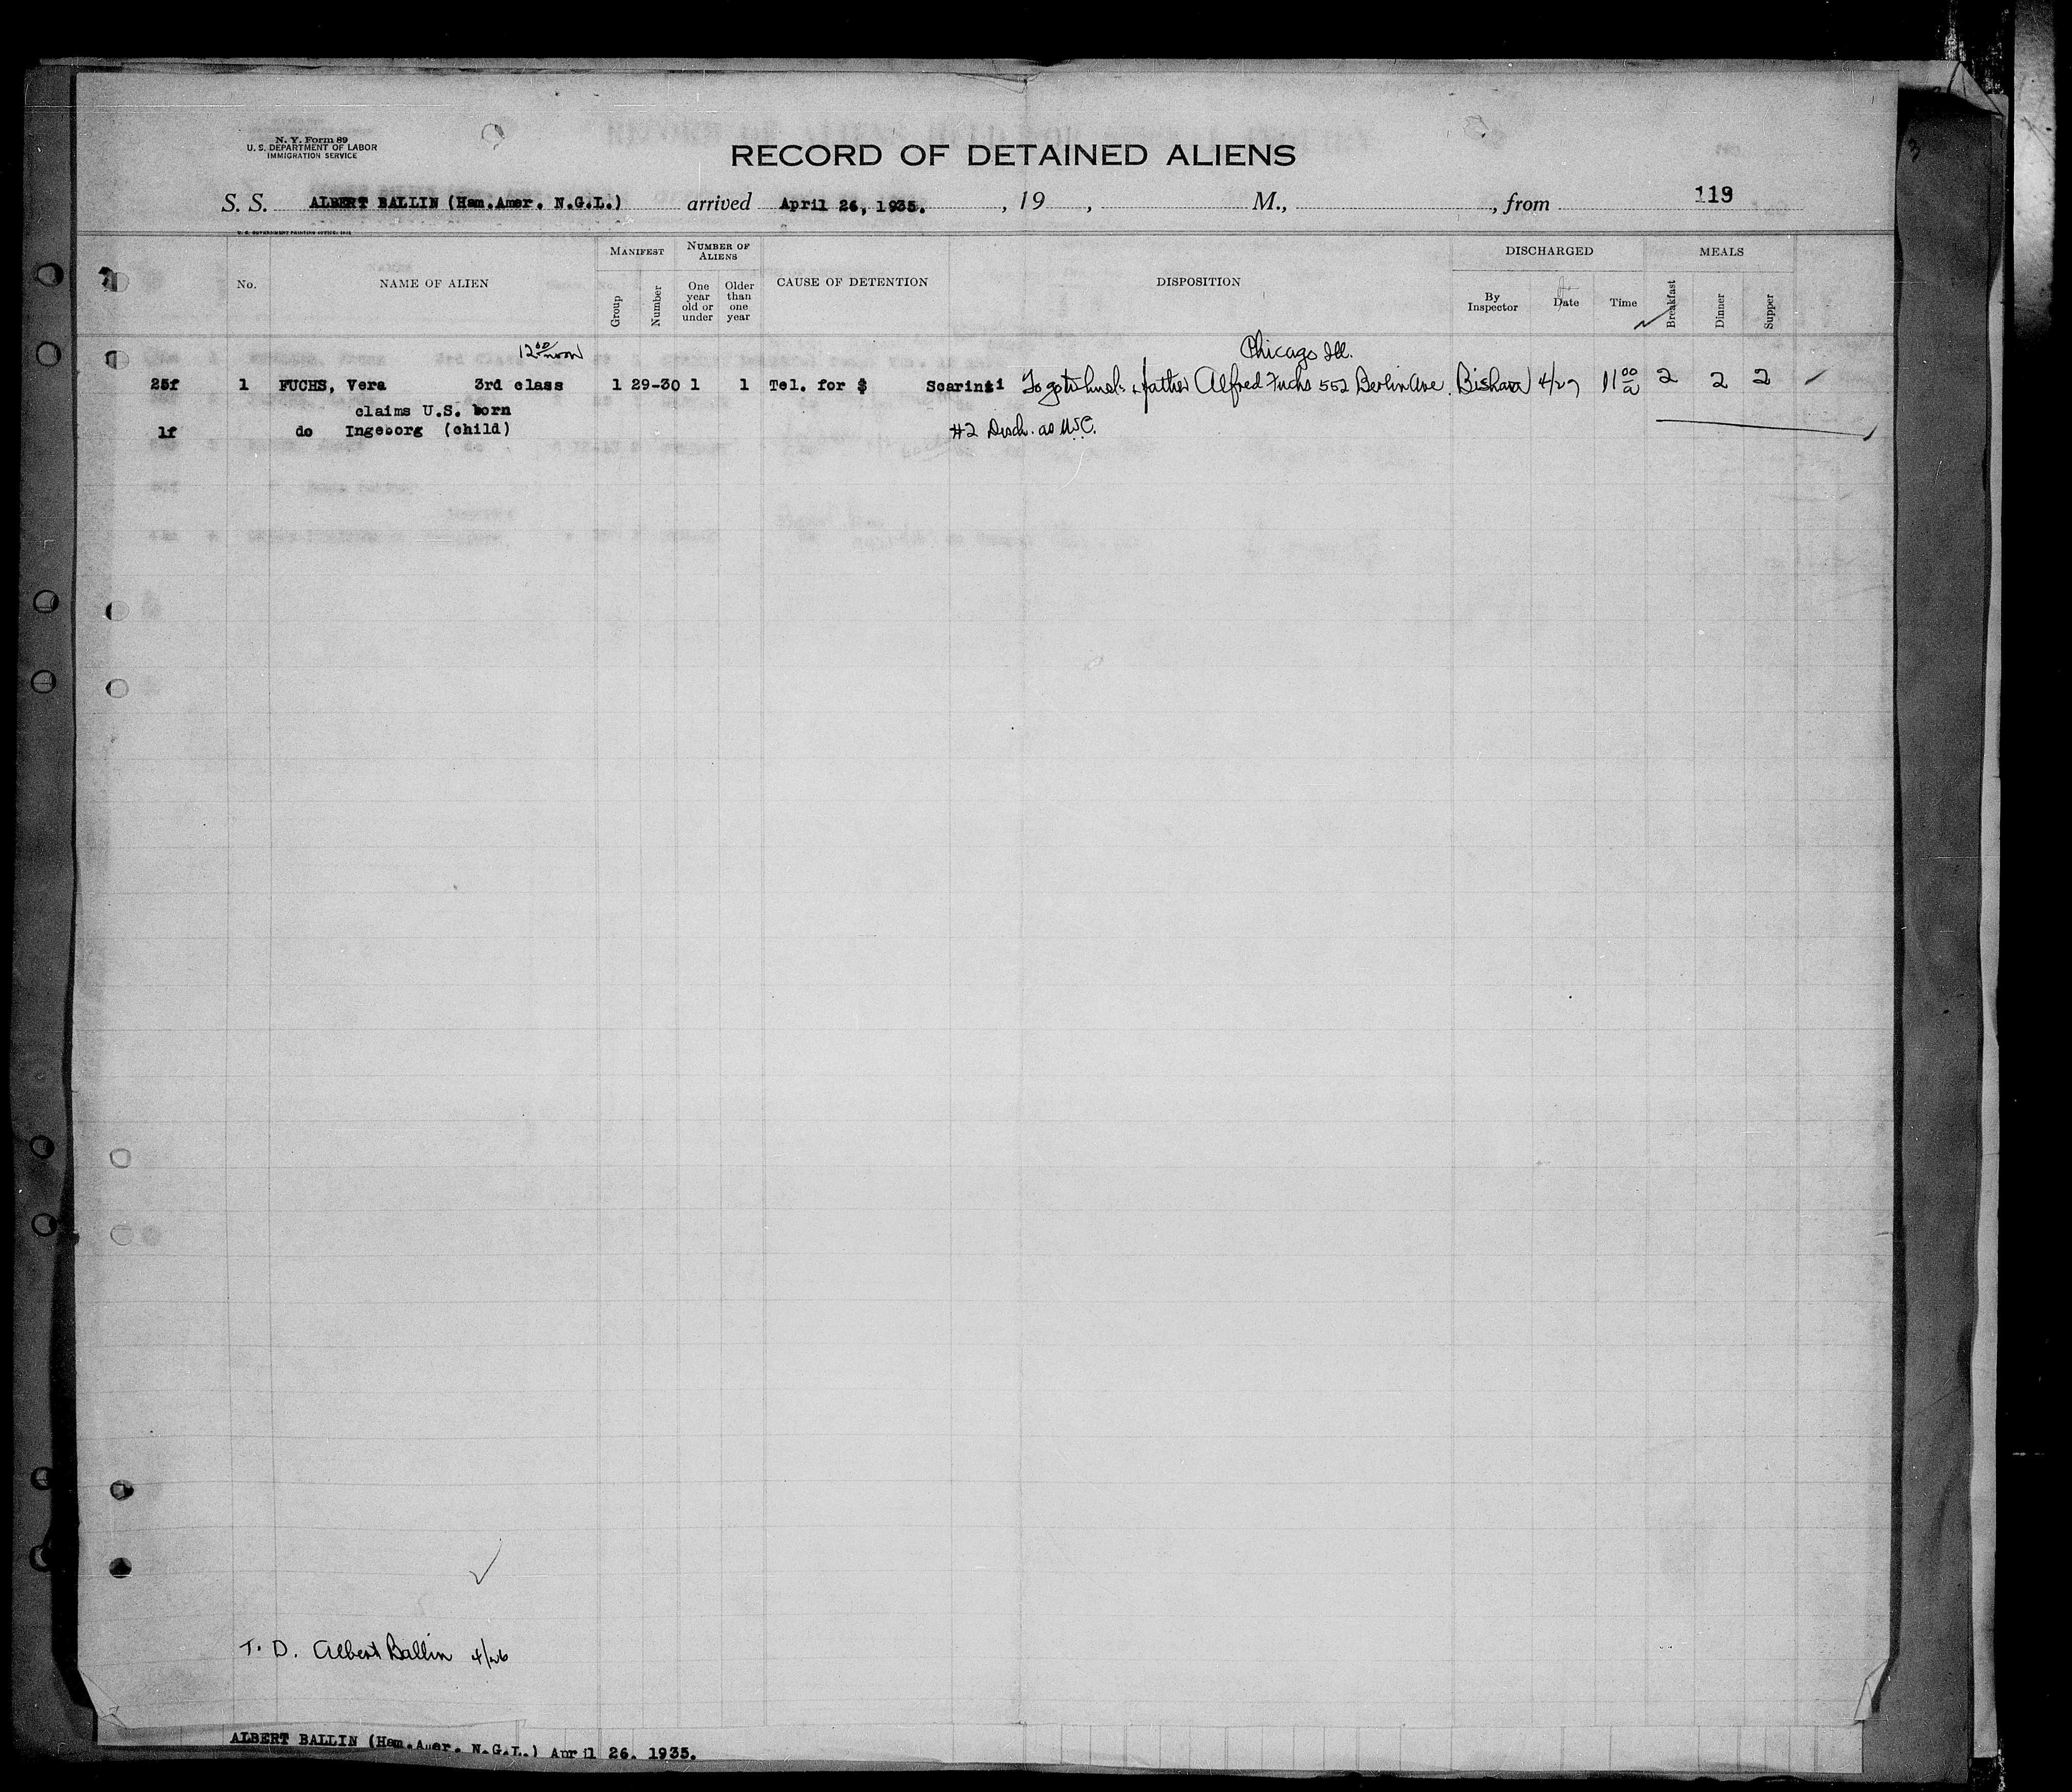 N. Y. Form 89
U. S. DEPARTMENT OF LABOR
IMMIGRATION SERVICE
RECORD OF DETAINED ALIENS
S. S. ALBERT BALLIN (Ham.Amer. N.G.L.) arrived April 26, 1935. , 19 , M., , from 119
U. S. GOVERNMENT PRINTING OFFICE
No. NAME OF ALIEN MANIFEST Group Number NUMBER OF ALIENS One year old or under Older than one year CAUSE OF DETENTION DISPOSITION DISCHARGED By Inspector Date Time MEALS Breakfast Dinner Supper
12 00 noon Chicago Ill.
25f 1 FUCHS, Vera 3rd class 1 29-30 1 1 Tel. for $ Scarinzi To go to husb. & father Alfred Fuchs 552 Berlin Ave. Bishara 4/27 11 00 a 2 2 2
claims U.S. born
1f do Ingeborg (child) #2 Disch. as USC.
T. D. Albert Ballin 4/26
ALBERT BALLIN (Ham.Amer. N.G.L.) April 26. 1935.
3